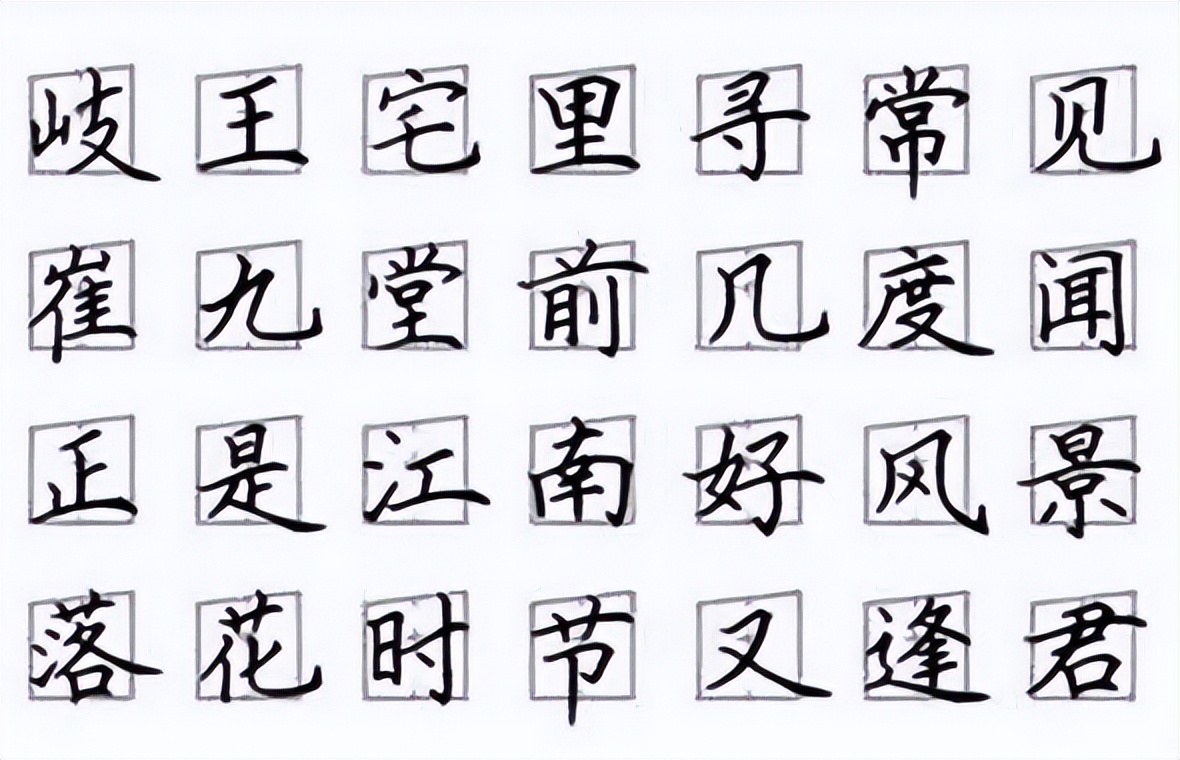 岐王宅里寻常见
崔九堂前几度闻
正是江南好风景
落花时节又逢君